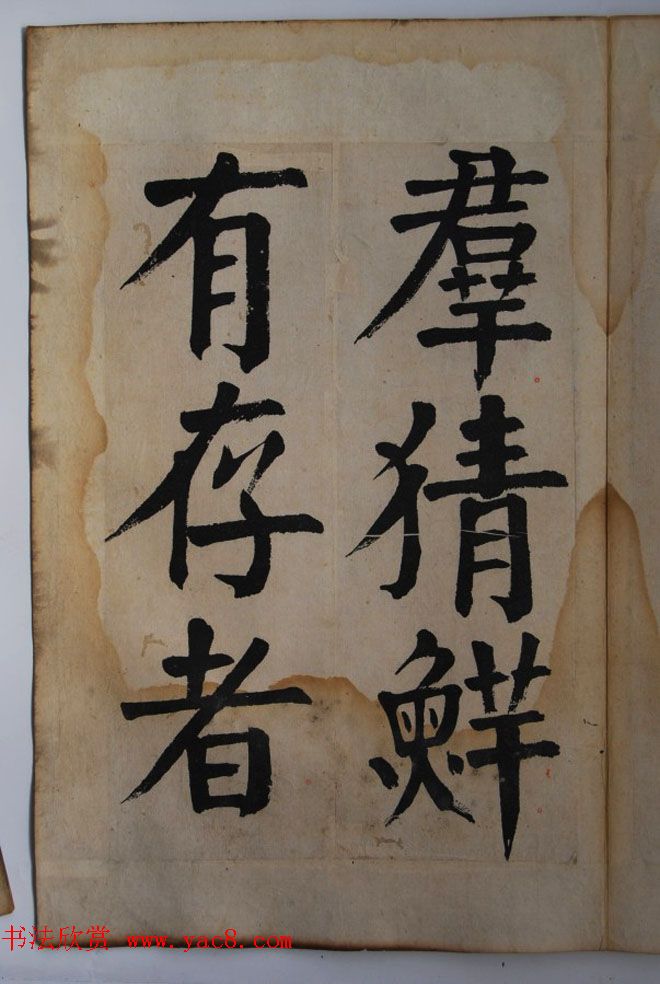 羣猜鮮
有存者
书法欣赏 www.yac8.com